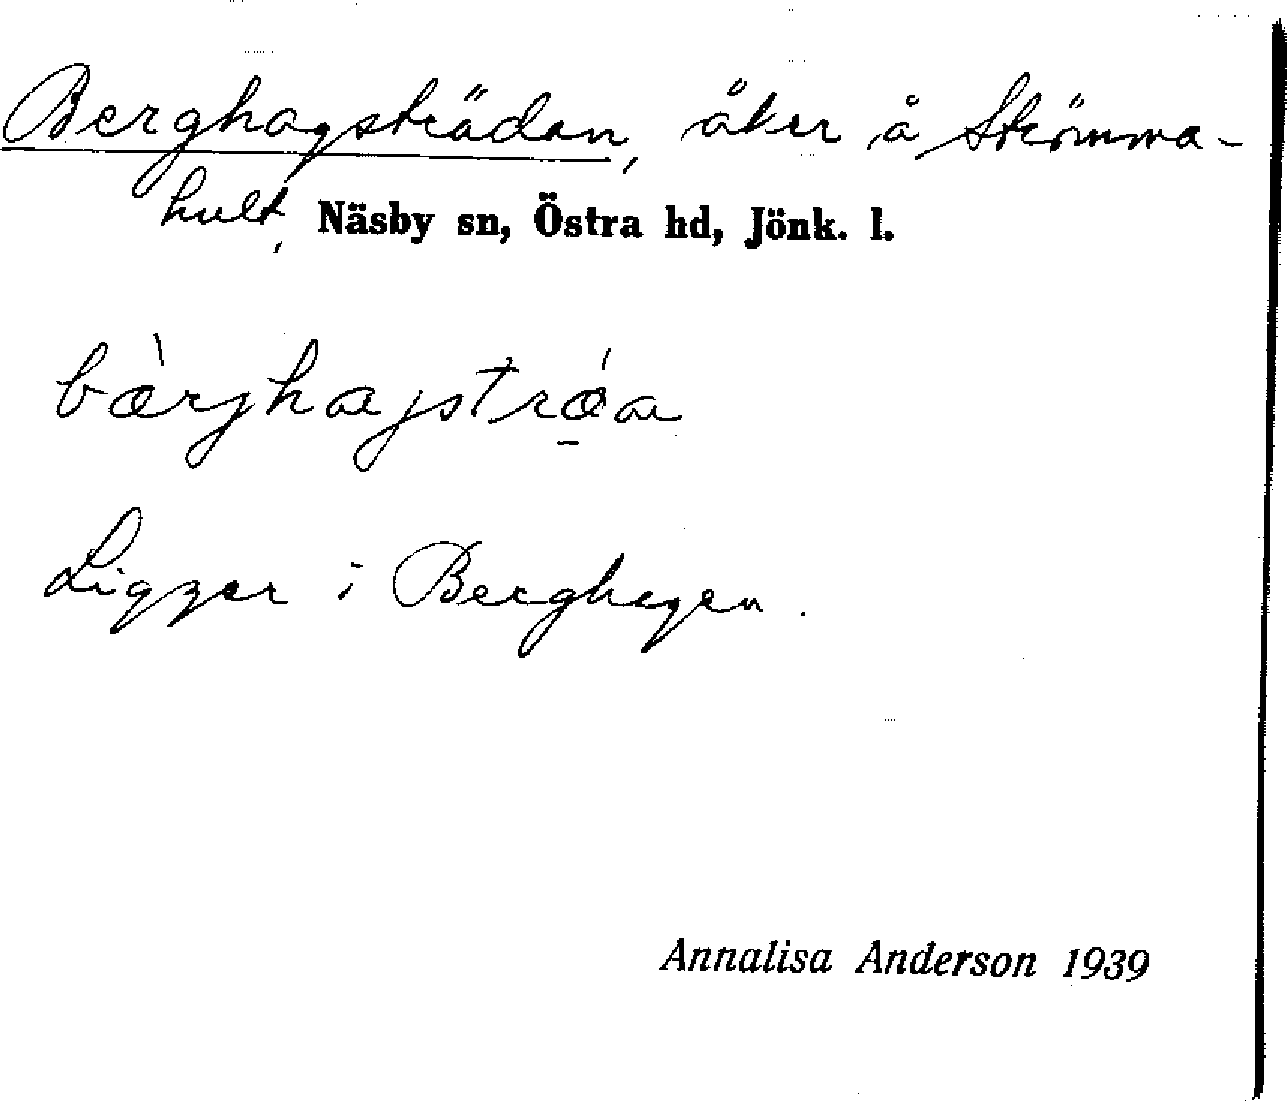 Berghagsträdan, åker å Strömma-
hult, Näsby sn, Östra hd, Jönk. l.
bæ̀rjhajstrǽa
Ligger i Berghagen.
Annalisa Anderson 1939